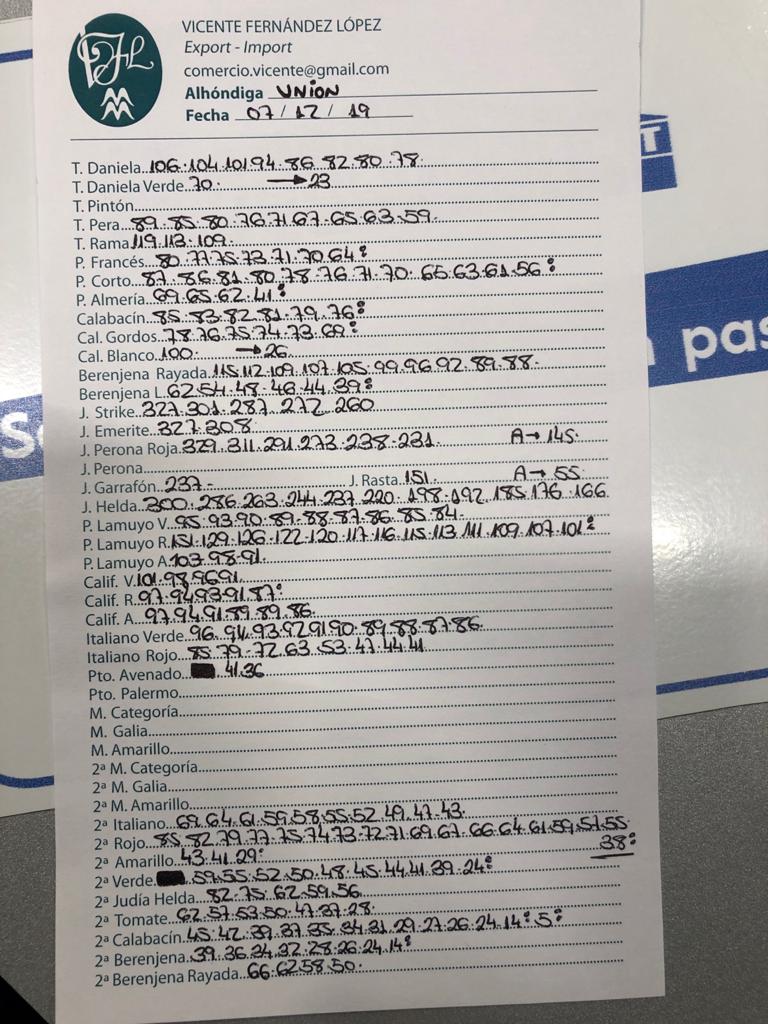 VICENTE FERNÁNDEZ LÓPEZ
Export - Import
comercio.vicente@gmail.com
Alhóndiga UNION
Fecha 07 / 12 / 19
T. Daniela 106.104.101.94.86.82.80.78.
T. Daniela Verde 70. → 23
T. Pintón
T. Pera 89.85.80.76.71.67.65.63.59.
T. Rama 119.113.109.
P. Francés 80.77.75.73.71.70.64:
P. Corto 87.86.81.80.78.76.71.70.65.63.61.56:
P. Almería 69.65.62.41:
Calabacín 85.83.82.81.79.76:
Cal. Gordos 78.76.75.74.73.69:
Cal. Blanco 100. → 26
Berenjena Rayada 115.112.109.107.105.99.96.92.89.88.
Berenjena L. 62.54.48.46.44.39:
J. Strike 327.301.287.272.260
J. Emerite 327.308
J. Perona Roja 329.311.291.273.238.231. A→ 145.
J. Perona
J. Garrafón 237- J. Rasta 151. A→ 55.
J. Helda 300.286.263.244.237.220.198.192.185.176.166
P. Lamuyo V. 95.93.90.89.88.87.86.85.84.
P. Lamuyo R. 151.129.126.122.120.117.116.115.113.111.109.107.101:
P. Lamuyo A. 103.98.91.
Calif. V. 101.98.96.91.
Calif. R. 97.94.93.91.87:
Calif. A. 97.94.91.89.89.86.
Italiano Verde 96.94.93.92.91.90.89.88.87.86.
Italiano Rojo 85.79.72.63.53.47.44.41
Pto. Avenado 41.36
Pto. Palermo
M. Categoría
M. Galia
M. Amarillo
2ª M. Categoría
2ª M. Galia
2ª M. Amarillo
2ª Italiano 69.64.61.59.58.55.52.49.47.43.
2ª Rojo 85.82.79.77.75.74.73.72.71.69.67.66.64.61.59.57.55.
38:
2ª Amarillo 43.41.29:
2ª Verde 59.55.52.50.48.45.44.41.39.24:
2ª Judía Helda 82.75.62.59.56.
2ª Tomate 62.57.53.50.47.37.28.
2ª Calabacín 45.42.39.37.35.34.31.29.27.26.24.14:5:
2ª Berenjena 39.36.34.32.28.26.24.14:
2ª Berenjena Rayada 66.62.58.50.